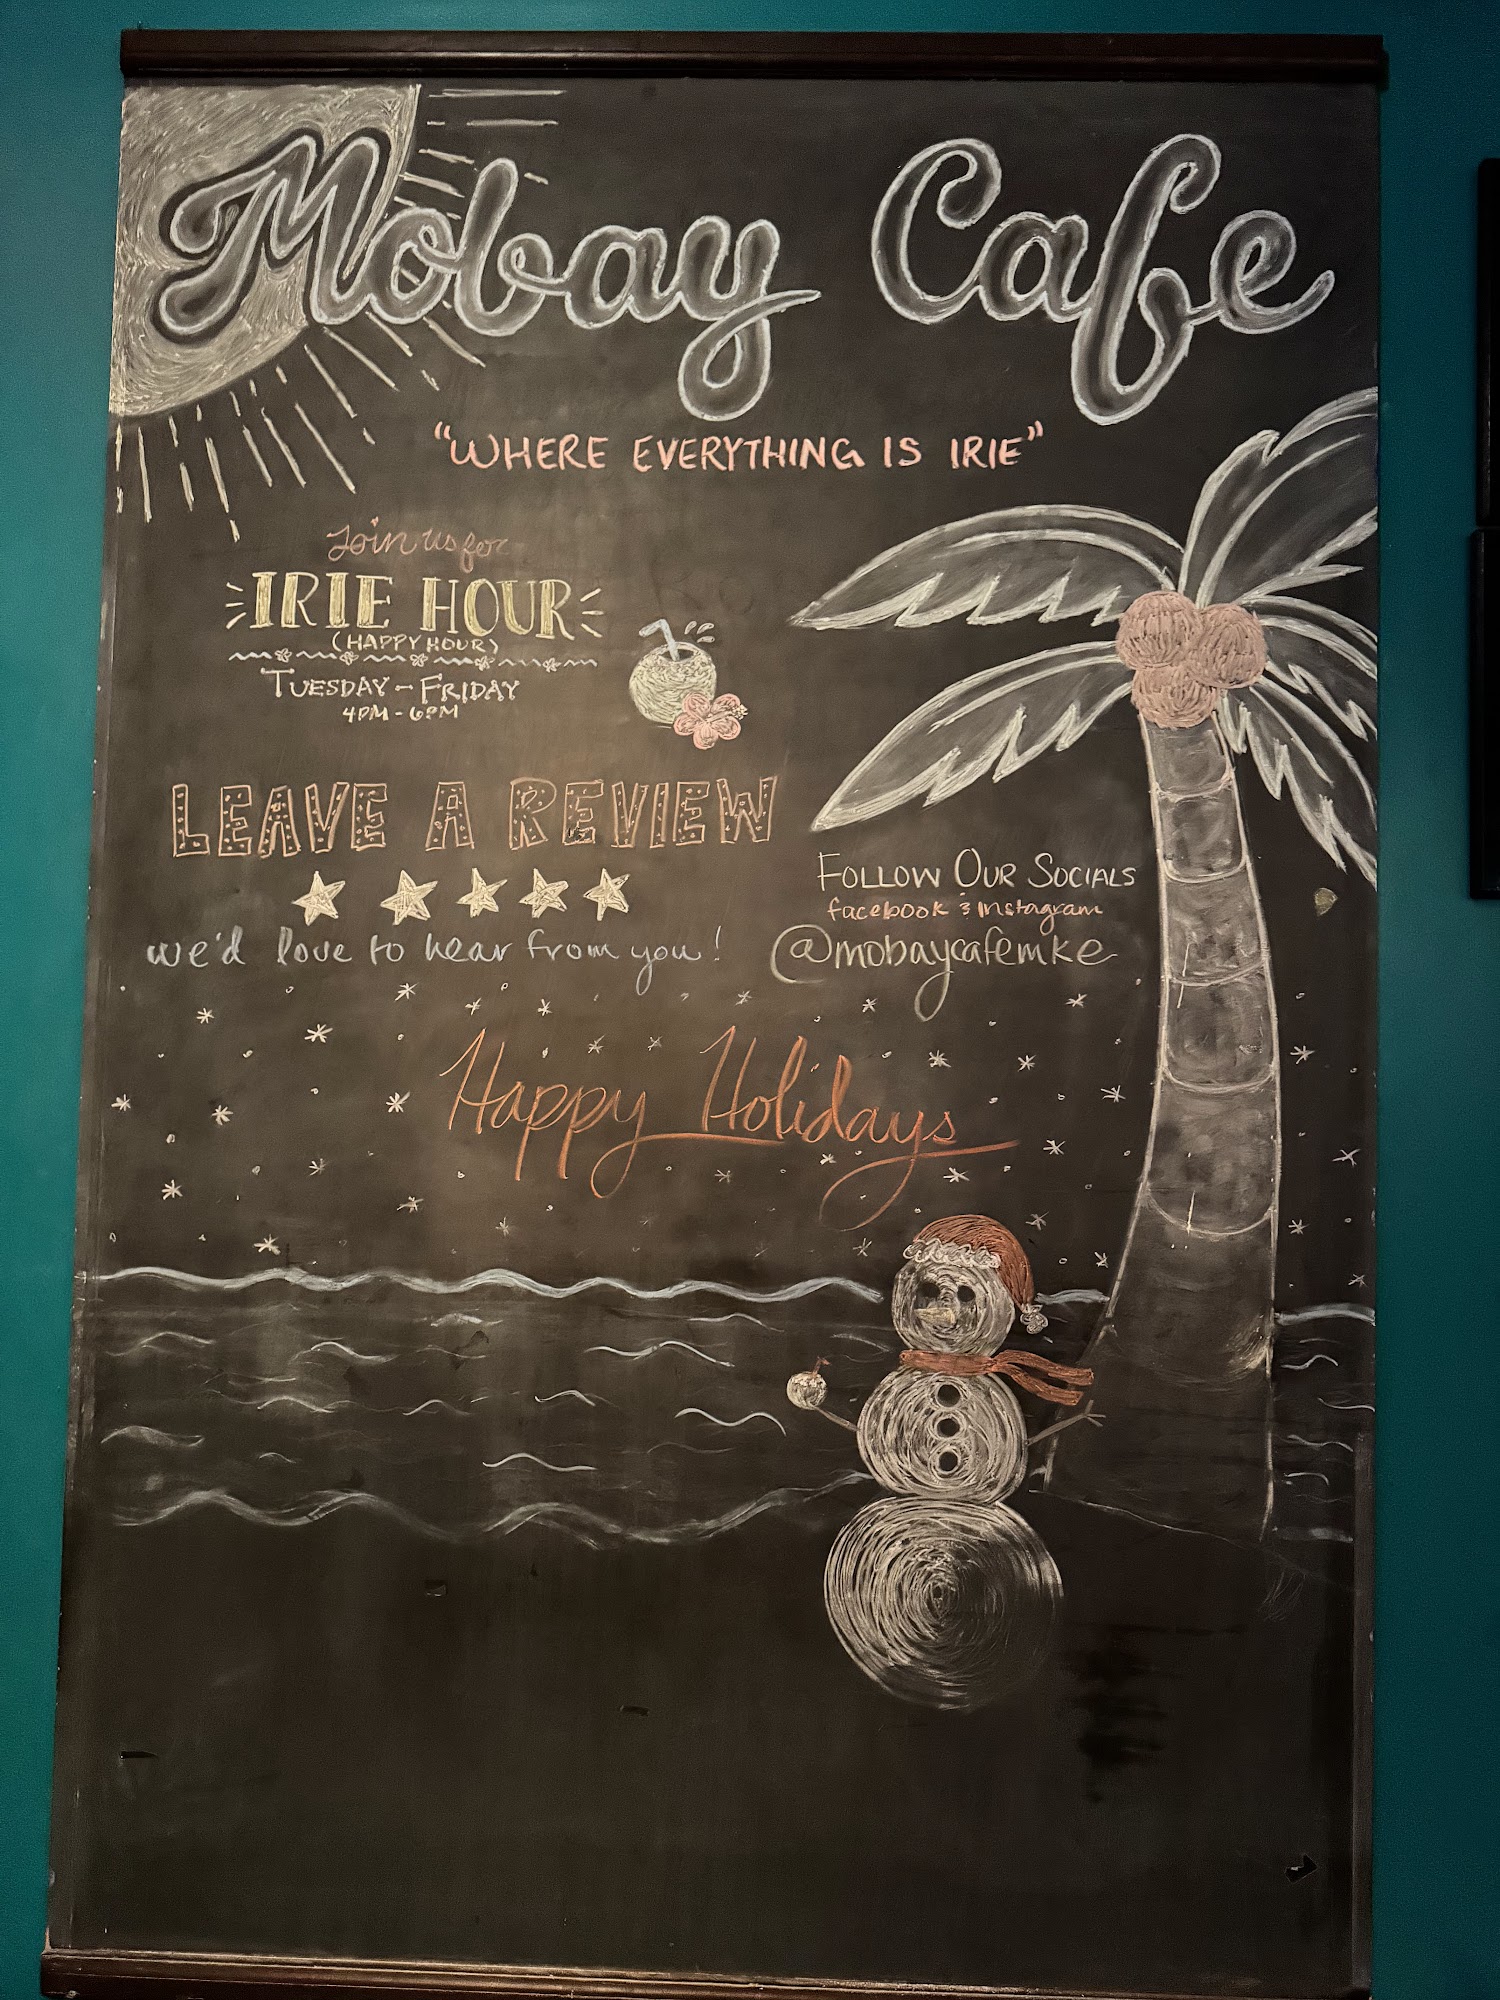 Mobay Cafe
"WHERE EVERYTHING IS IRIE"
Join us for
IRIE HOUR
(HAPPY HOUR)
TUESDAY - FRIDAY
4PM - 6PM
LEAVE A REVIEW
we'd love to hear from you!
FOLLOW OUR SOCIALS
facebook & Instagram
@mobaycafemke
Happy Holidays